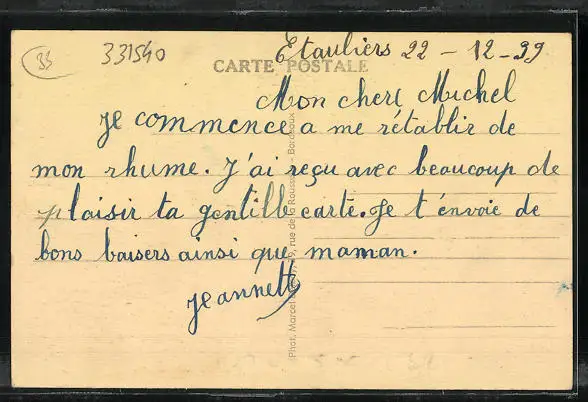 33
331540
Etauliers 22 - 12 - 39
CARTE POSTALE
Mon cher Michel
Je commence a me rétablir de
mon rhume. J'ai reçu avec beaucoup de
plaisir ta gentille carte. Je t'envoie de
bons baisers ainsi que maman.
Jeannette
Phot. Marcel rue de la Rousselle - Bordeaux